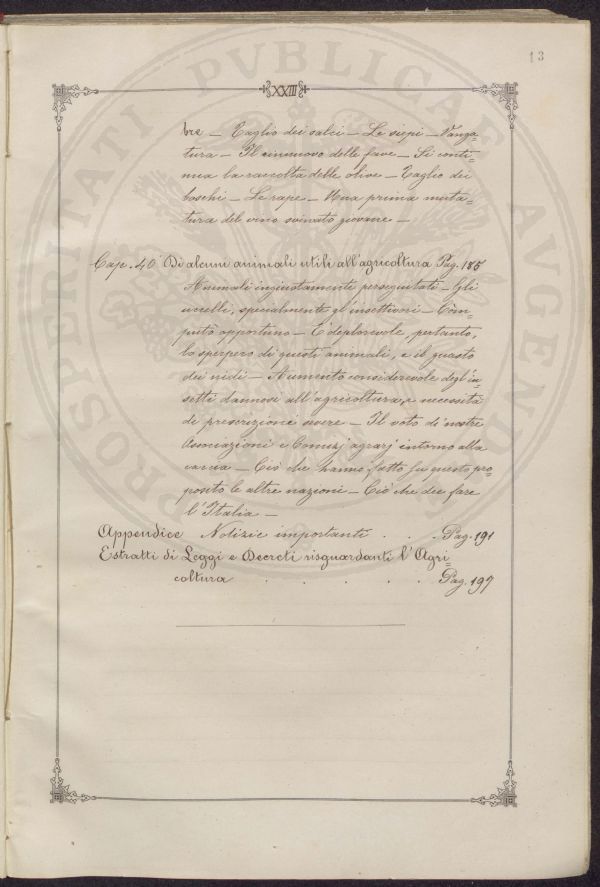 13
XXIII
PROSPERITATI PVBLICAE AVGENDAE
bre — Taglio dei salci — Le siepi — Vanga=
tura — Il rinnuovo delle fave — Si conti=
nua la raccolta delle olive — Taglio dei
boschi — Le rape — Una prima muta=
tura del vino svinato giovane —
Cap. 40 Di alcuni animali utili all'agricoltura Pag. 185
Animali ingiustamente perseguitati — Gli
uccelli, specialmente gl'insettivori — Com=
puto opportuno — È deplorevole, pertanto,
lo sperpero di questi animali, e il guasto
dei nidi — Aumento considerevole degl'in=
setti dannosi all'agricoltura, e necessità
di prescrizioni severe — Il voto di nostre
Associazioni e Comizj agrarj intorno alla
caccia — Ciò che hanno fatto su questo pro=
posito le altre nazioni — Ciò che dee fare
l'Italia —
Appendice Notizie importanti . . . Pag. 191
Estratti di Leggi e Decreti risguardanti l'Agri=
coltura . . . . . Pag. 197